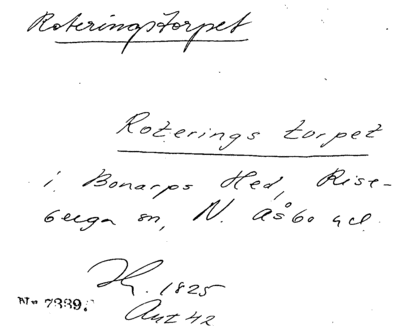 Roteringstorpet
Roterings torpet
i Bonarps Hed, Rise-
berga sn, N. Åsbo hd.
1825
Ant 42
No 7339.